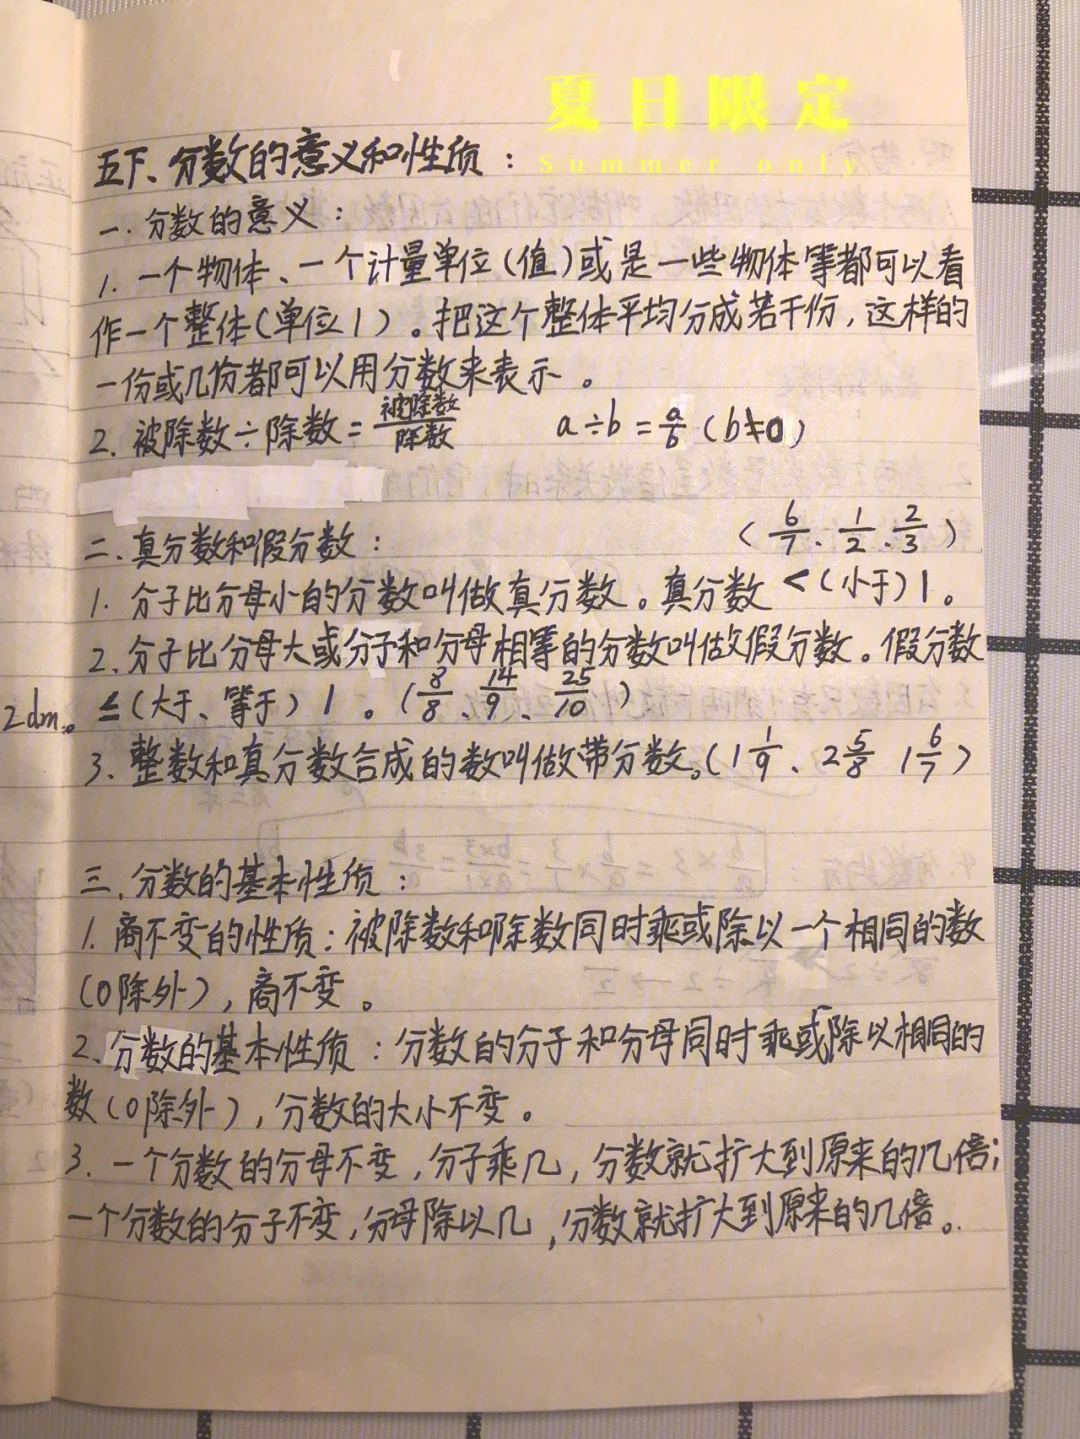 夏日限定
Summer only
五下、分数的意义和性质：
一.分数的意义：
1.一个物体、一个计量单位(值)或是一些物体等都可以看
作一个整体(单位1)。把这个整体平均分成若干份,这样的
一份或几份都可以用分数来表示。
2.被除数÷除数=被除数/除数 a÷b=a/b(b≠0)
二.真分数和假分数： (6/7、1/2、2/3)
1.分子比分母小的分数叫做真分数。真分数<(小于)1。
2.分子比分母大或分子和分母相等的分数叫做假分数。假分数
≤(大于、等于)1。(8/8、14/9、25/10)
2dm。
3、整数和真分数合成的数叫做带分数。(1 1/9、2 5/8 1 6/7)
三.分数的基本性质：
1.商不变的性质：被除数和除数同时乘或除以一个相同的数
(0除外),商不变。
2、分数的基本性质：分数的分子和分母同时乘或除以相同的
数(0除外),分数的大小不变。
3.一个分数的分母不变,分子乘几,分数就扩大到原来的几倍;
一个分数的分子不变,分母除以几,分数就扩大到原来的几倍。